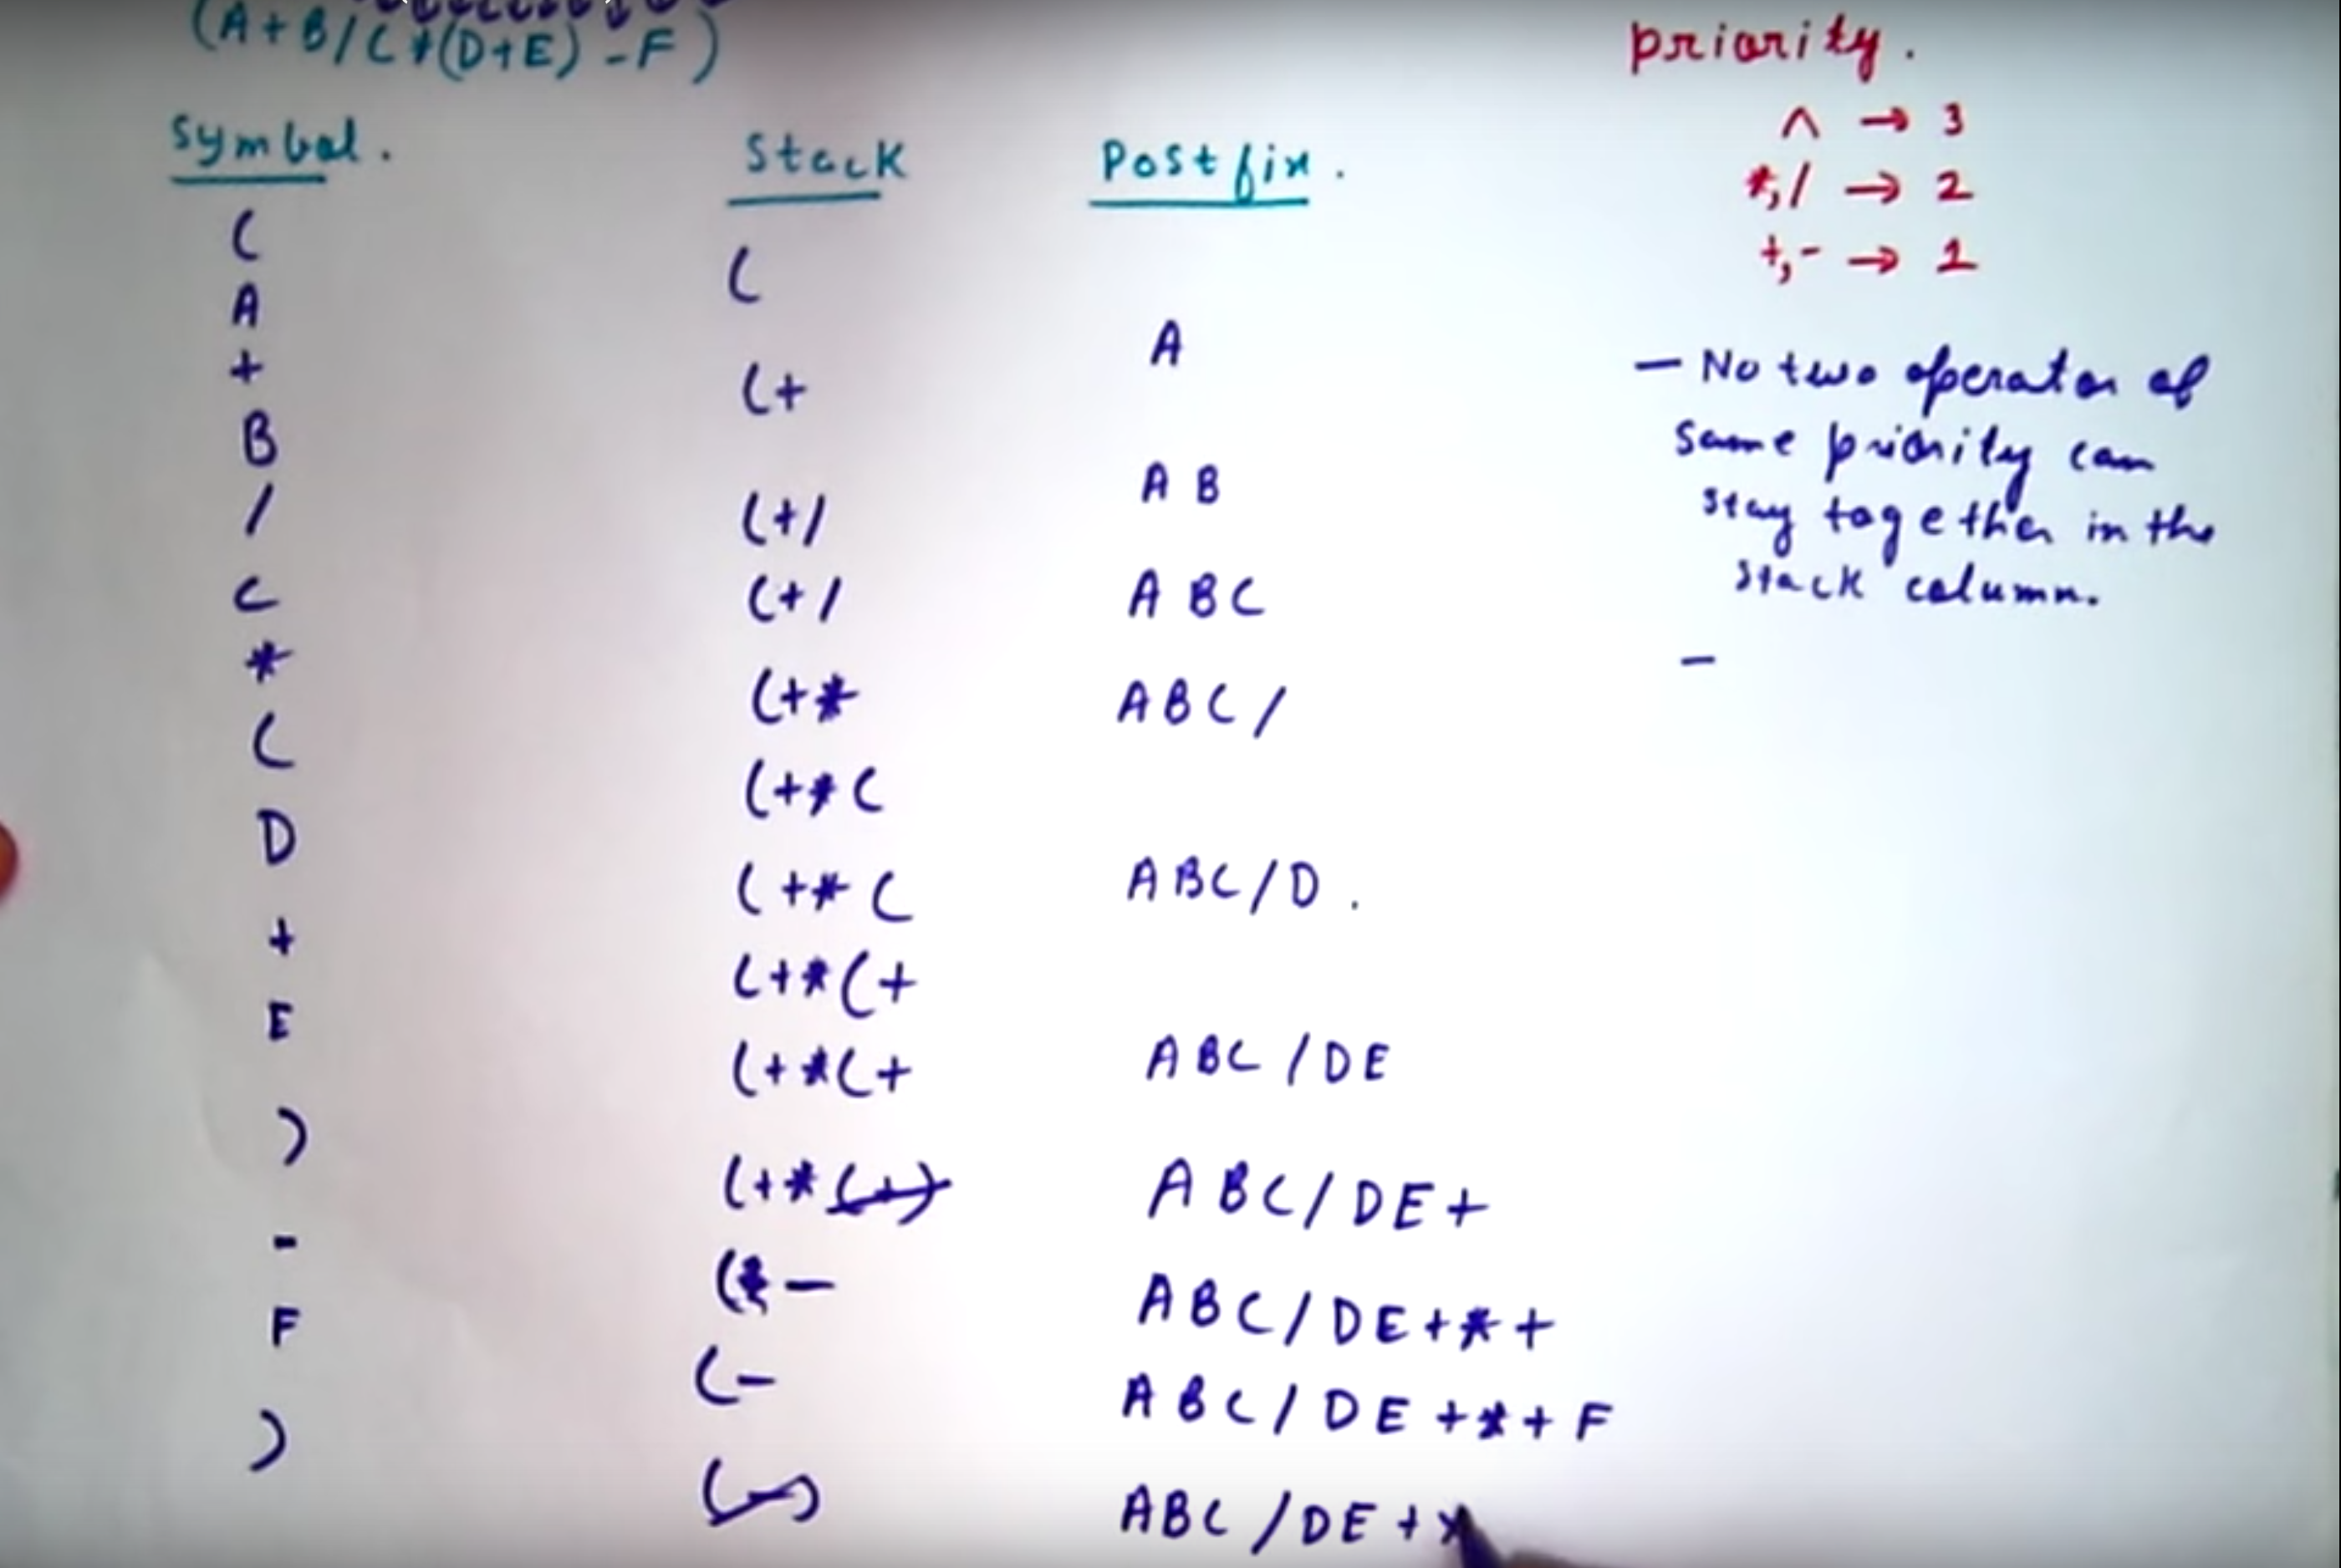 (A+B/C*(D+E)-F)
Symbol.
(
A
+
B
/
C
*
(
D
+
E
)
-
F
)
Stack
(
(+
(+/
(+/
(+*
(+*(
(+*(
(+*(+
(+*(+
(+*(+)
(-
(-
(-)
Postfix.
A
AB
ABC
ABC/
ABC/D.
ABC/DE
ABC/DE+
ABC/DE+*+
ABC/DE+*+F
ABC/DE+*
priority.
^ → 3
*,/ → 2
+,- → 1
- No two operator of
same priority can
stay together in the
stack column.
-